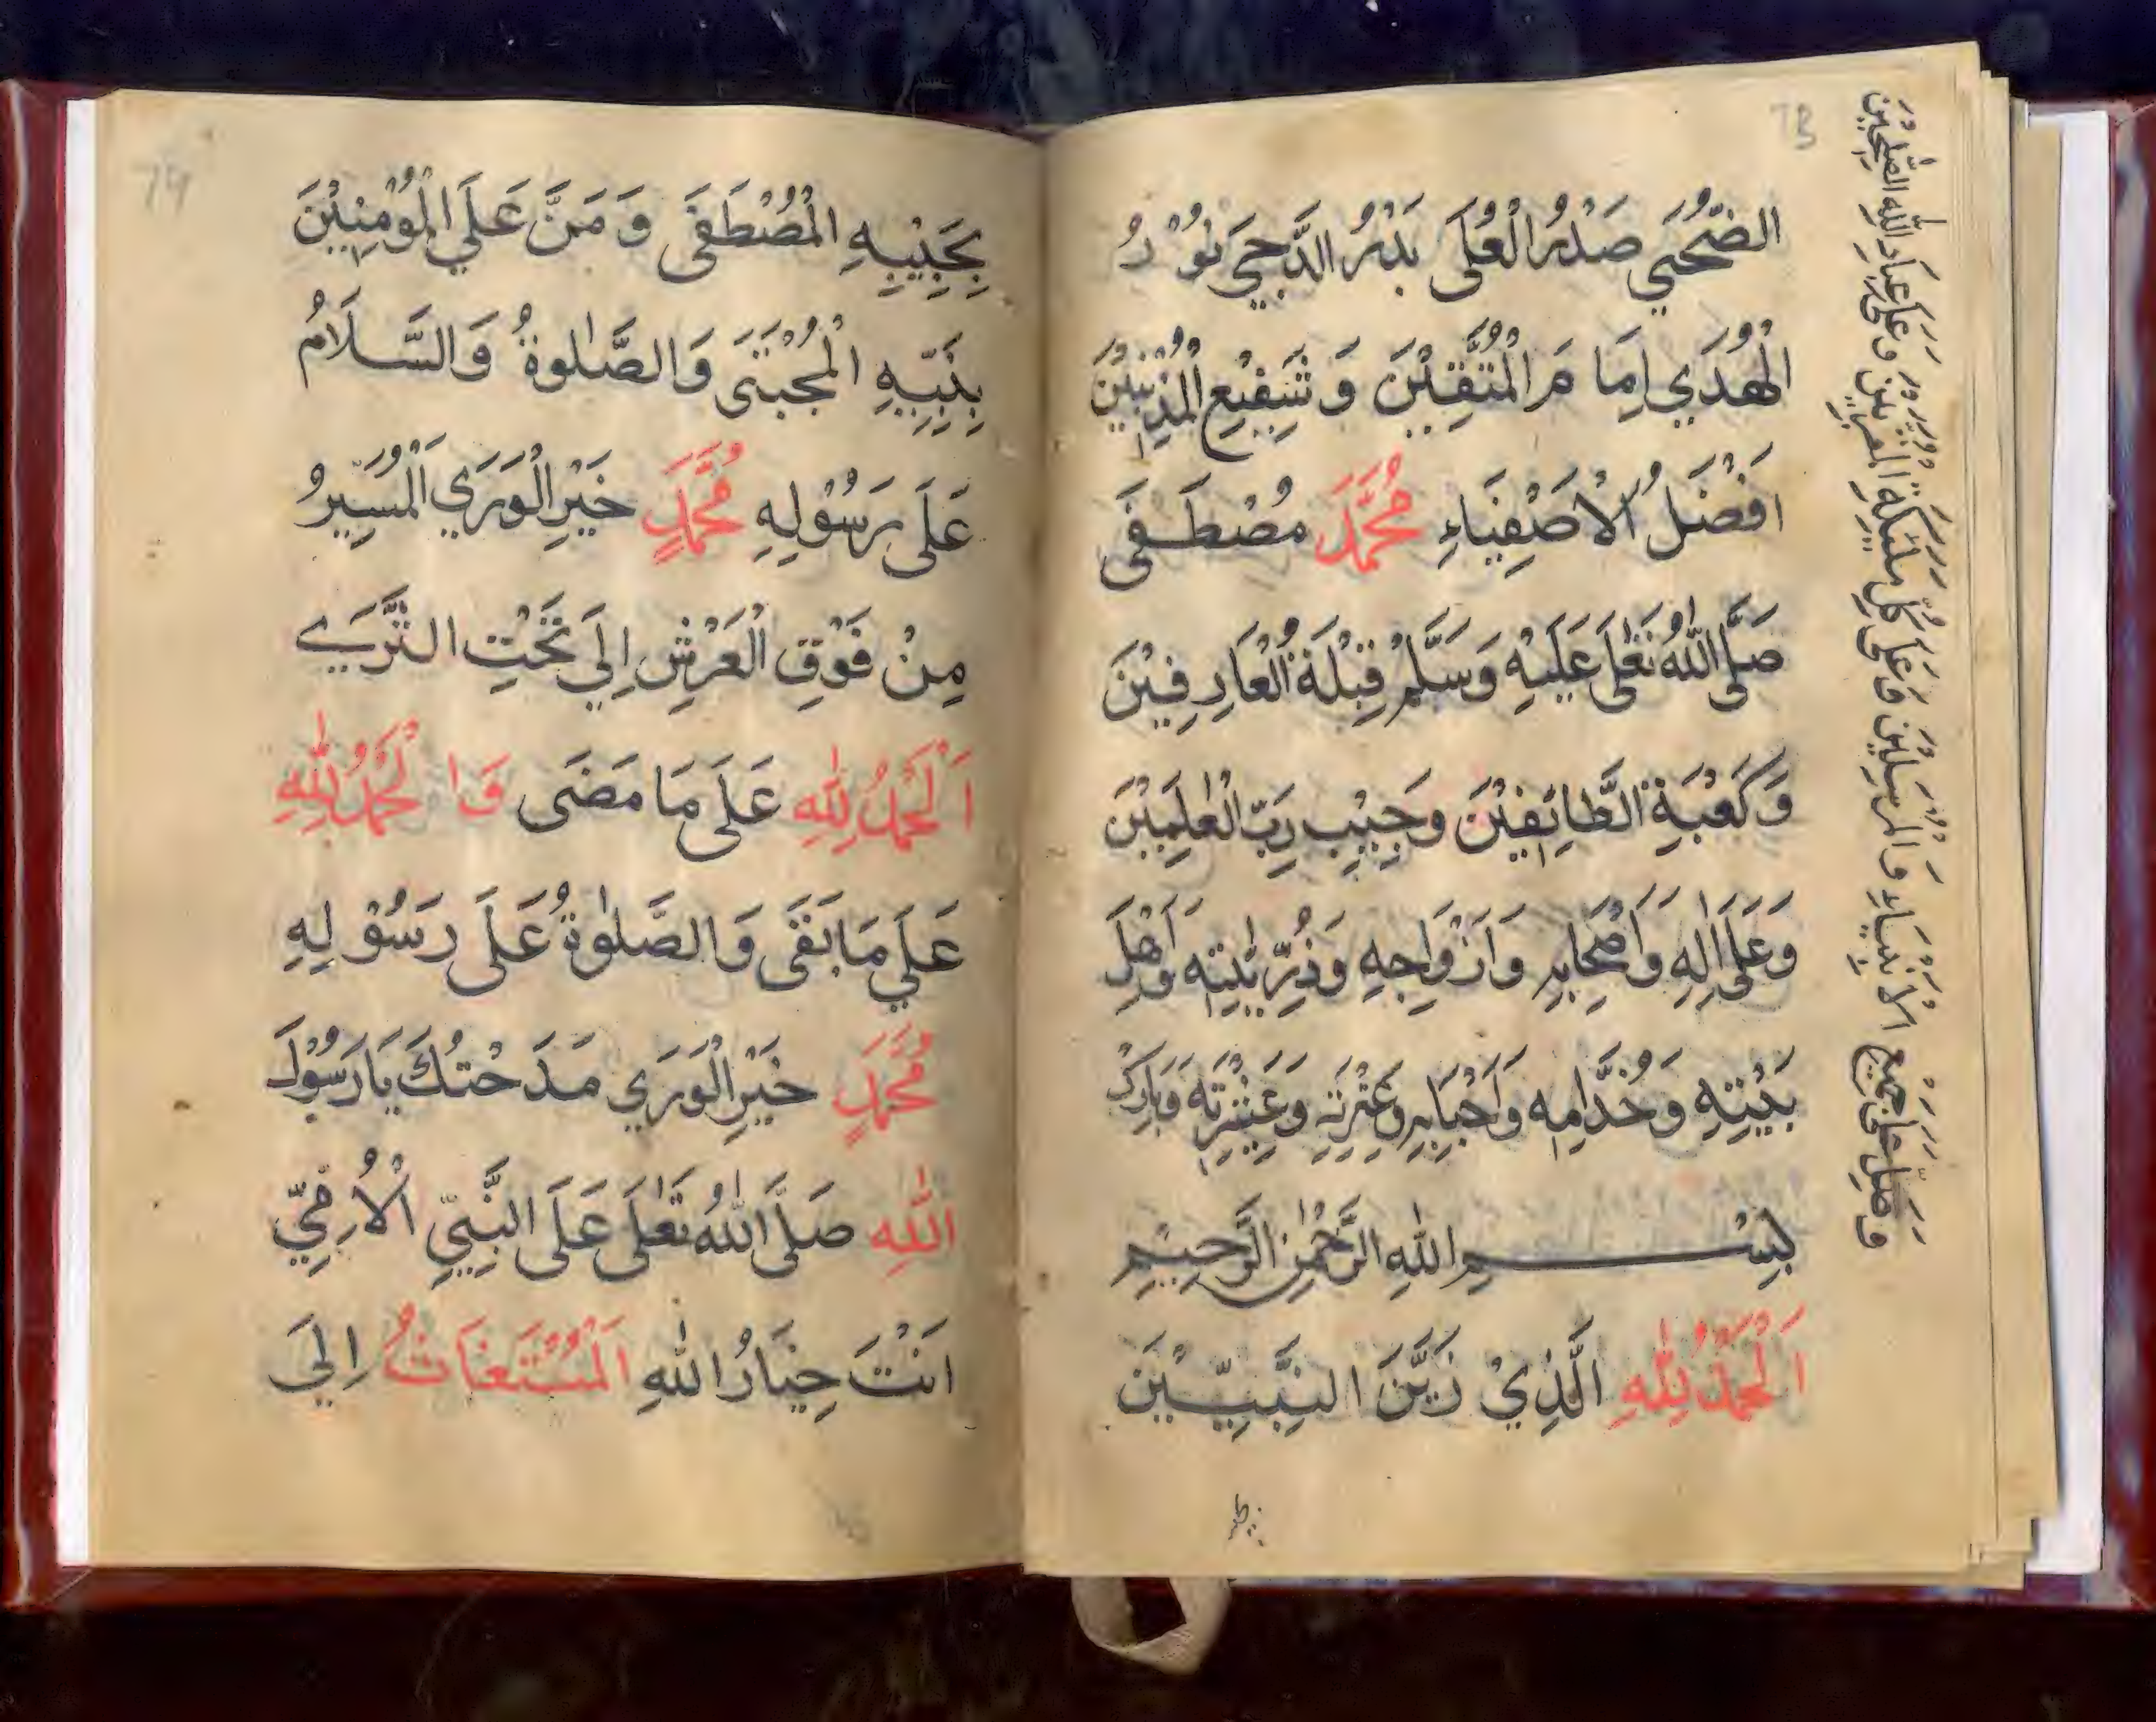 73
الضُّحَي صَدْرُ الْعُلَى بَدْرُ الدَّجَي نُوْرُ
الْهُدَي اِمَامَ الْمُتَّقِيْنَ وَشَفِيْعِ الْمُذْنِبِيْنَ
اَفْضَلُ الْاَصْفِيَاءِ مُحَمَّدَ مُصْطَفَى
صَلَّى اللّٰهُ تَعٰلَى عَلَيْهِ وَسَلَّمْ قِبْلَةَ الْعَارِفِيْنَ
وَكَعْبَةِ الطَّائِفِيْنَ وَحَبِيْبِ رَبِّ الْعٰلَمِيْنَ
وَعَلَى اٰلِهِ وَاَصْحَابِهِ وَاَزْوَاجِهِ وَذُرِّيّٰتِهِ وَاَهْلِ
بَيْتِهِ وَخُدَّامِهِ وَاَحْبَابِهِ وَعِتْرَتِهِ وَعَشِيْرَتِهِ وَبَارِكْ
بِسْمِ اللّٰهِ الرَّحْمٰنِ الرَّحِيْمِ
اَلْحَمْدُ لِلّٰهِ الَّذِيْ زَيَّنَ النَّبِيِّيْنَ
وَصَلِّ عَلَى جَمِيْعِ الْاَنْبِيَاءِ وَالْمُرْسَلِيْنَ وَعَلَى كُلِّ مَلٰئِكَةِ الْمُقَرَّبِيْنَ وَعَلَى عِبَادِ اللّٰهِ الصّٰلِحِيْنَ
74
بِحَبِيْبِهِ الْمُصْطَفَى وَمَنَّ عَلَي الْمُوْمِنِيْنَ
بِنَبِيِّهِ الْمُجْتَبَى وَالصَّلٰوةُ وَالسَّلَامُ
عَلَى رَسُوْلِهِ مُحَمَّدٍ خَيْرِ الْوَرَي اَلْمُسَيِّرُ
مِنْ فَوْقِ الْعَرْشِ اِلَي تَحْتِ الثَّرَي
اَلْحَمْدُ لِلّٰهِ عَلَى مَا مَضَى وَالْحَمْدُ لِلّٰهِ
عَلَي مَا بَقَى وَالصَّلٰوةُ عَلَى رَسُوْلِهِ
مُحَمَّدٍ خَيْرِ الْوَرَي مَدَحْتُكَ يَا رَسُوْلَ
اللّٰهِ صَلَّى اللّٰهُ تَعٰلَى عَلَى النَّبِيِّ الْاُمِّيِّ
اَنْتَ خِيَارُ اللّٰهِ اَلْمُسْتَغَاثُ اِلَيَ